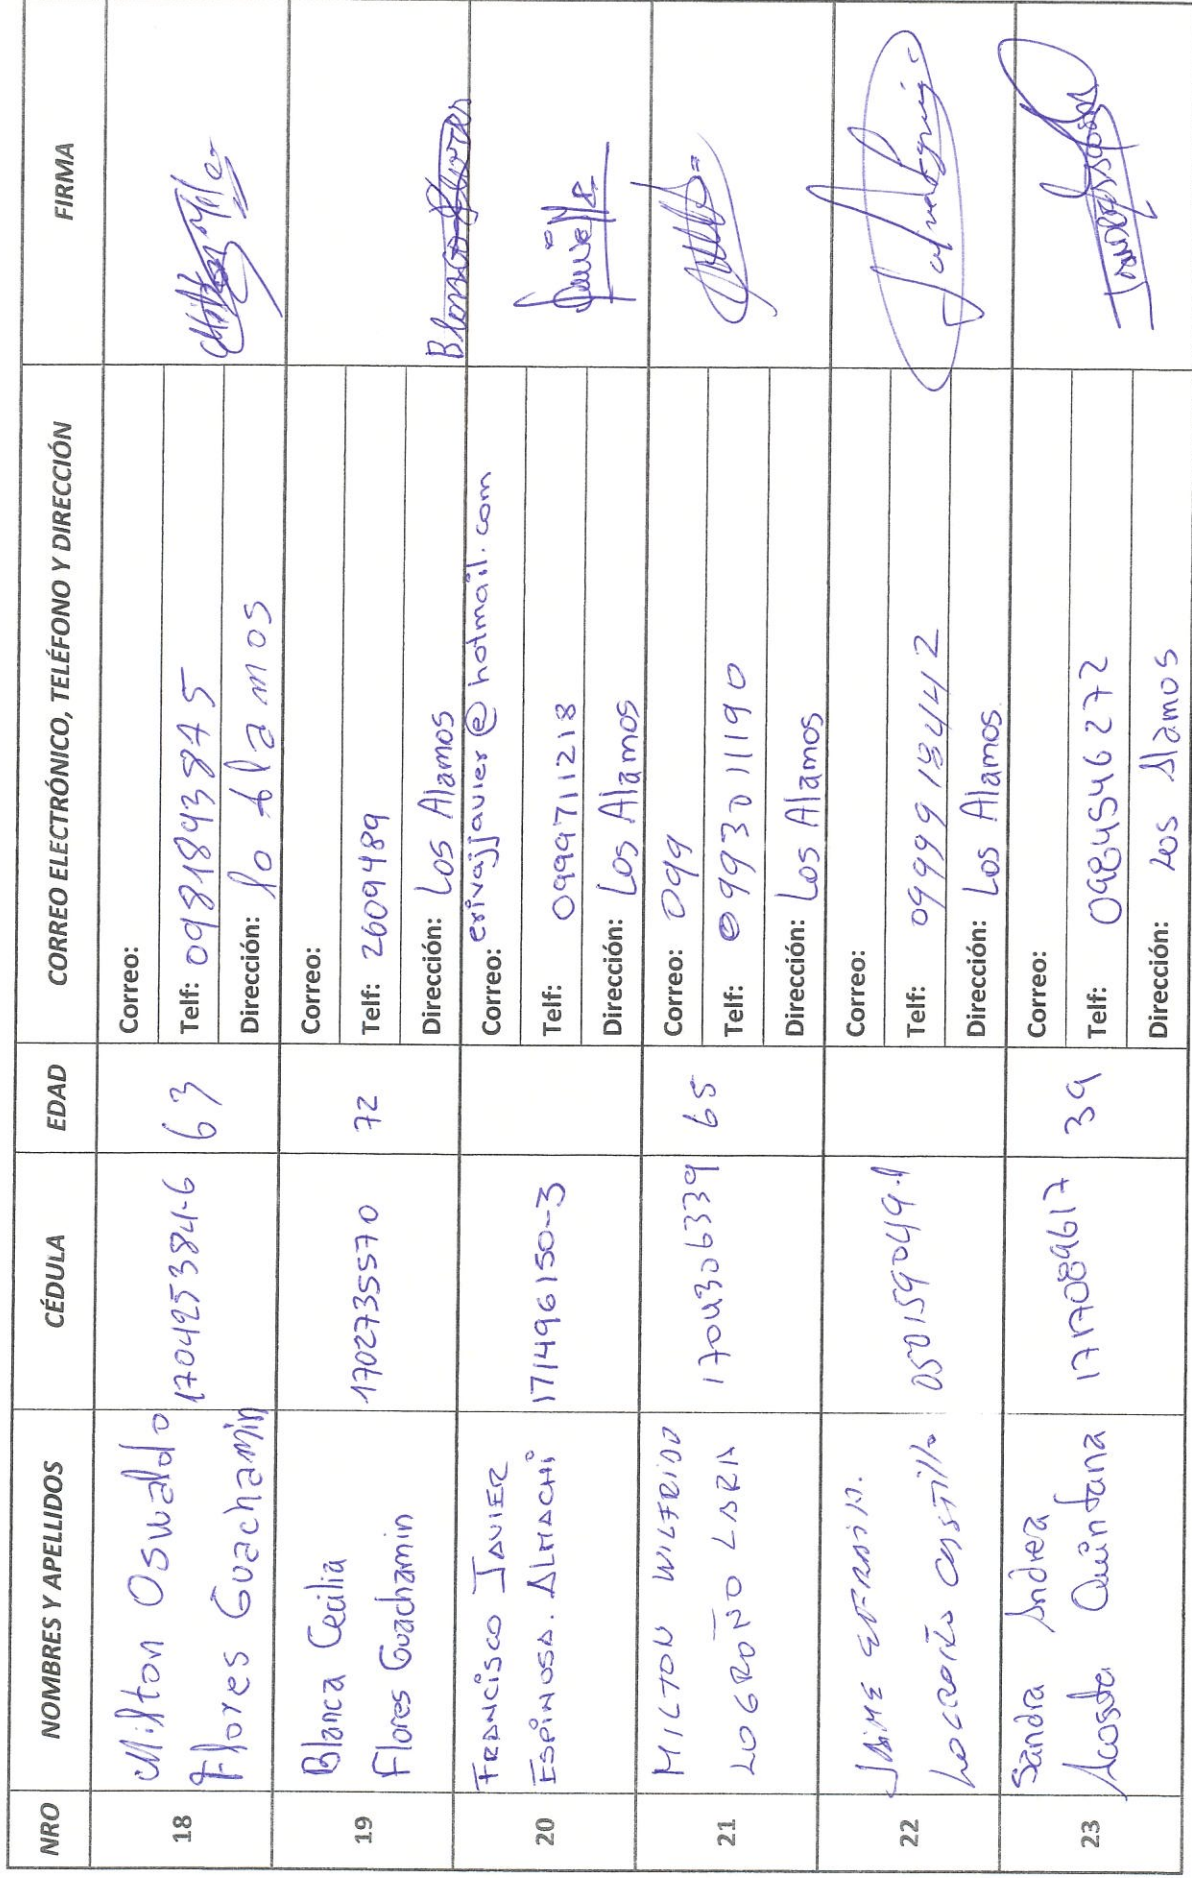 NRO NOMBRES Y APELLIDOS CÉDULA EDAD CORREO ELECTRÓNICO, TELÉFONO Y DIRECCIÓN FIRMA
18
Milton Oswaldo
Flores Guachamin
170425384-6
63
Correo:
Telf: 0981893875
Dirección: lo Alamos
19
Blanca Cecilia
Flores Guachamin
1702735570
72
Correo:
Telf: 2609489
Dirección: Los Alamos
Blanca Flores
20
FRANCISCO JAVIER
ESPINOSA. ALMACHI
171496150-3
Correo: erivajjavier@hotmail.com
Telf: 0999711218
Dirección: Los Alamos
21
MILTON WILFRIDO
LOGROÑO LARA
1704306339
65
Correo: 099
Telf: 0993011190
Dirección: Los Alamos
22
JAIME EFRAIN.
LOGROÑO CASTILLO
050159049-1
Correo:
Telf: 0999183442
Dirección: Los Alamos
23
Sandra Andrea
Acosta Quintana
1717089617
39
Correo:
Telf: 0984546272
Dirección: Los Alamos